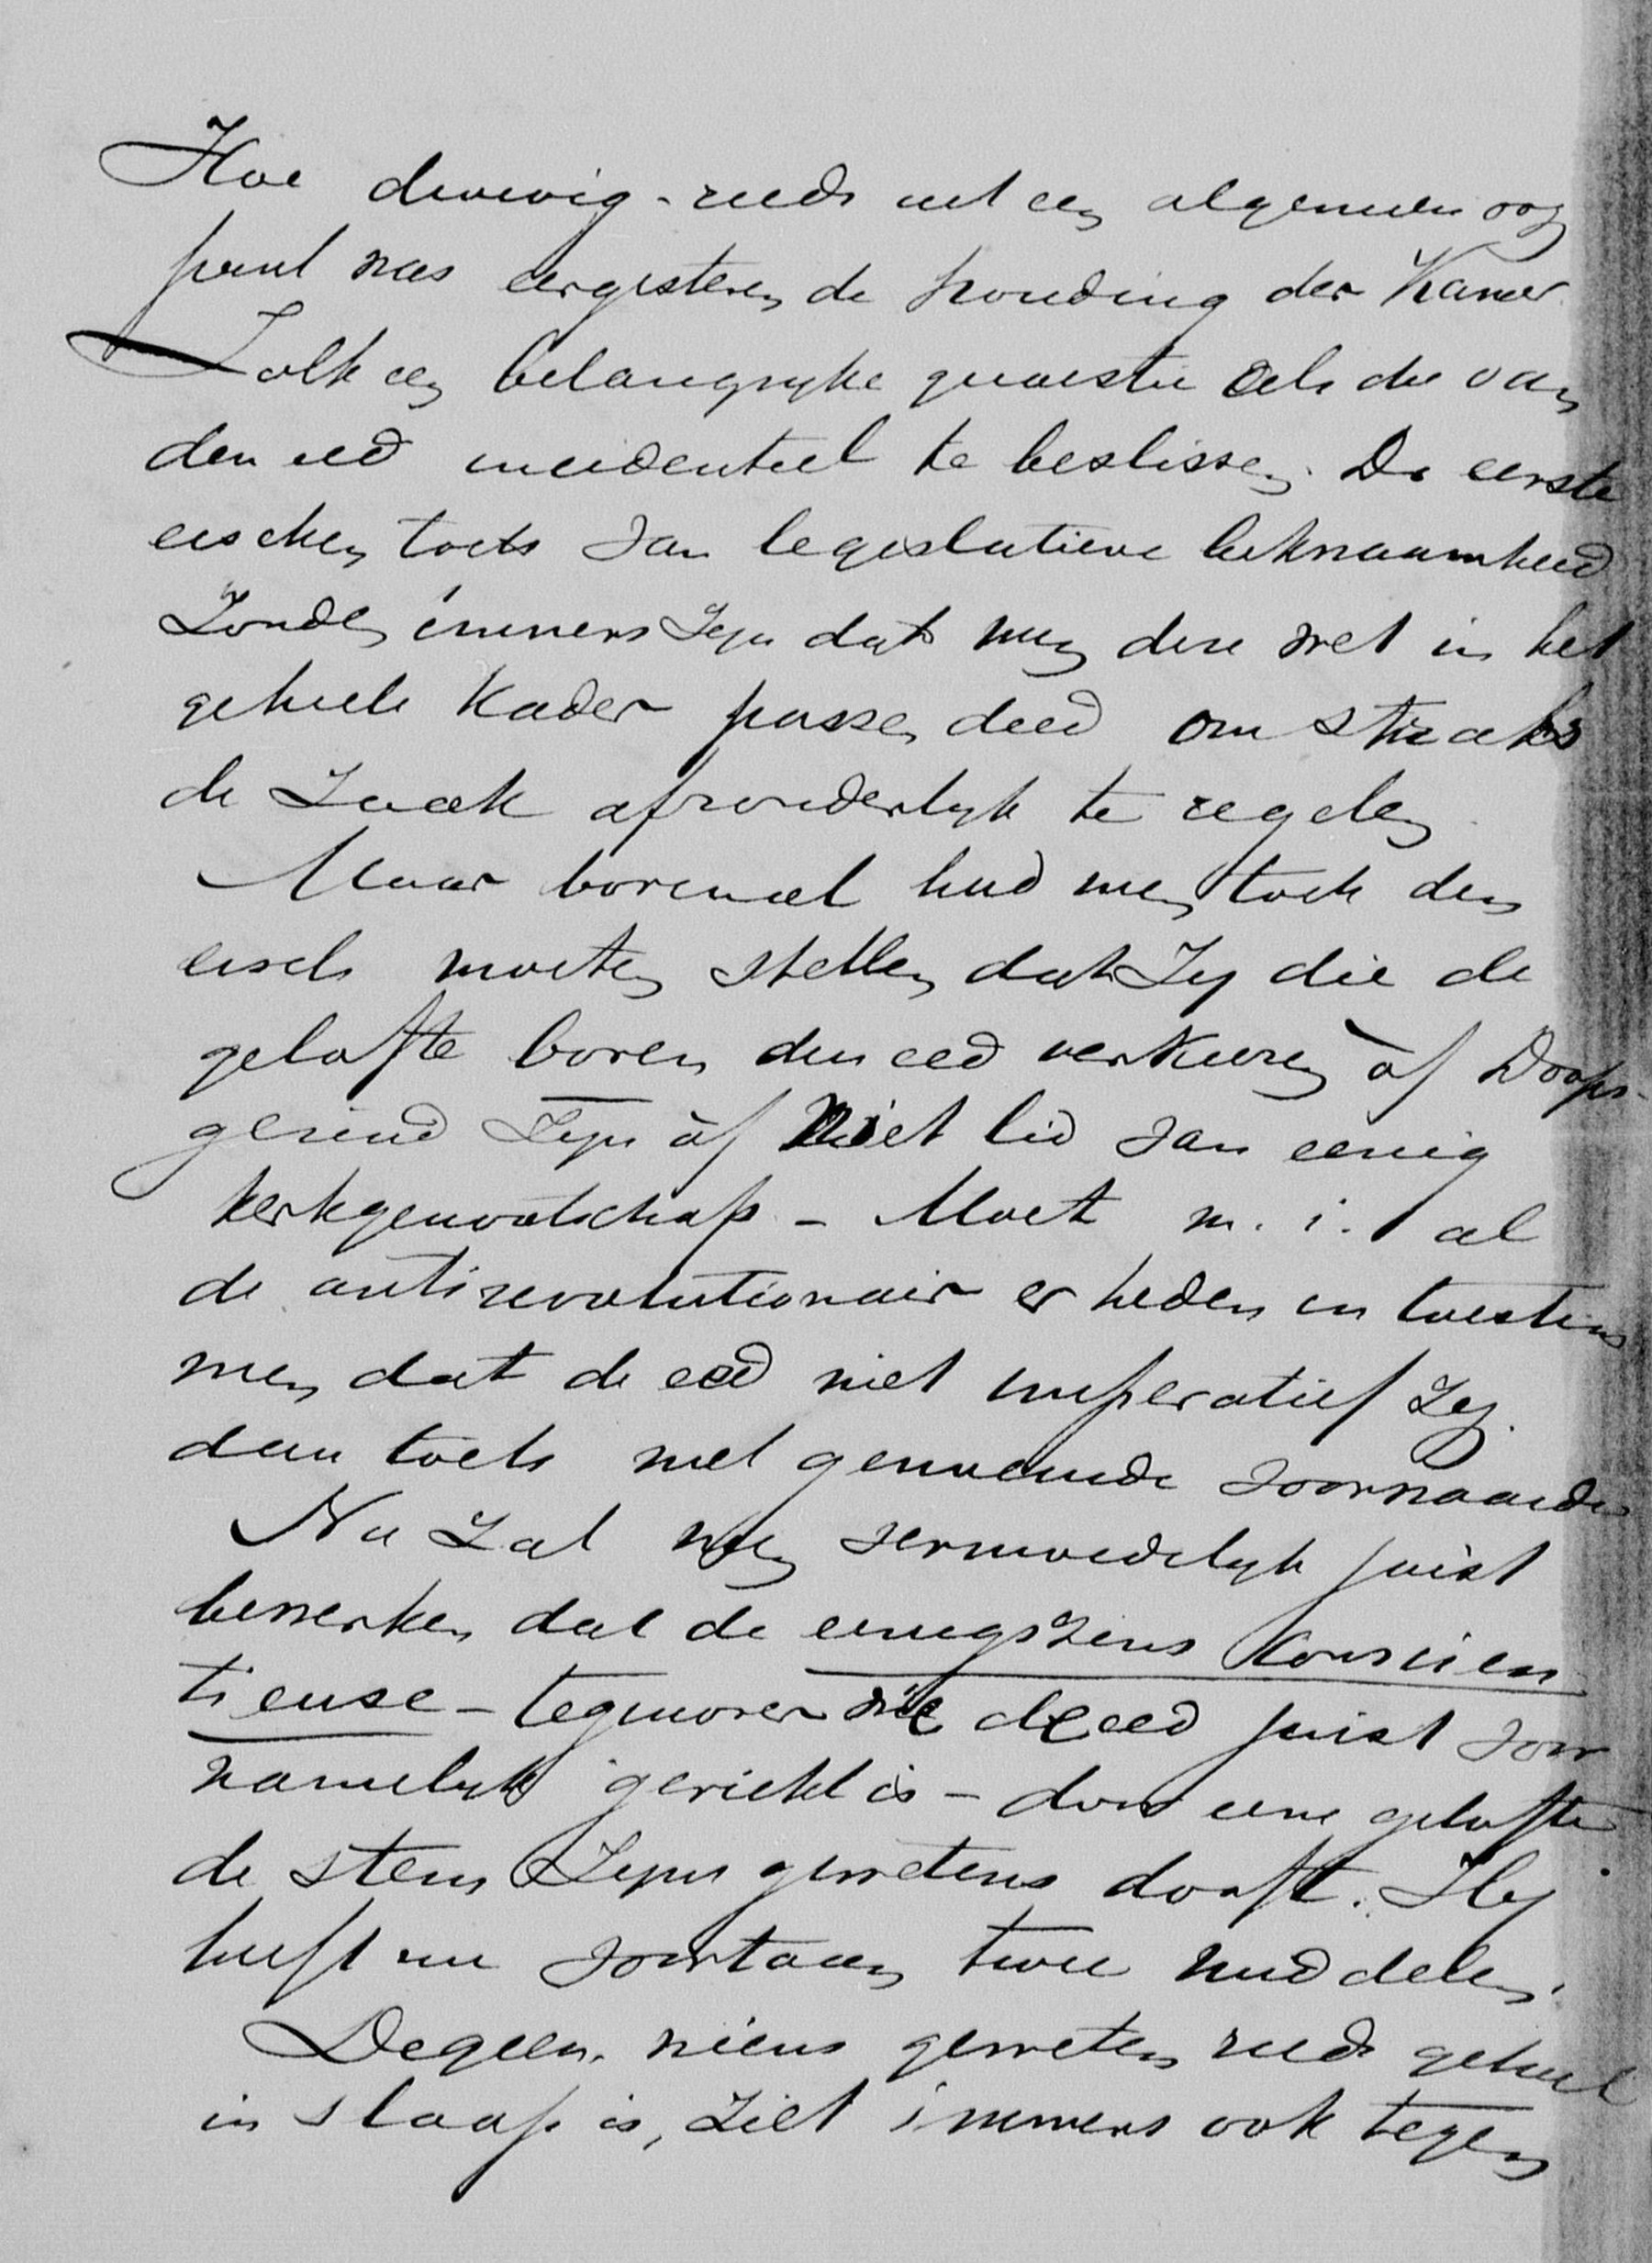 Hoe droevig - reeds uit een algemeen oog
punt was eergisteren de houding der Kamer.
Zulk een belangrijke quaestie als die van
den eed incidenteel te beslissen. De eerste
eischen toch van legislatieve bekwaamheid
Zouden immers Zijn dat men deze wet in het
geheele Kader passen deed om straks
de Zaak afzonderlijk te regelen.
Maar bovenal had men toch den
eisch moeten stellen dat Zij die de
gelofte boven den eed verkiezen òf Doops-
gezind Zijn òf niet lid van eenig
kerkgenootschap - Moet m. i. al
de antirevolutionair er heden in toestem
men dat de eed niet imperatief Zij.
dan toch met genoemde voorwaarden
Nu Zal men vermoedelijk juist
bewerken dat de eenigszins Conscien
tieuse - tegenover wie de eed juist voor
namelijk gericht is - door eene gelofte
de stem Zijns gewetens dooft. Hij
heeft nu voortaan twee middelen.
Degeen wiens geweten reeds geheel
in slaap is, Ziet immers ook tegen